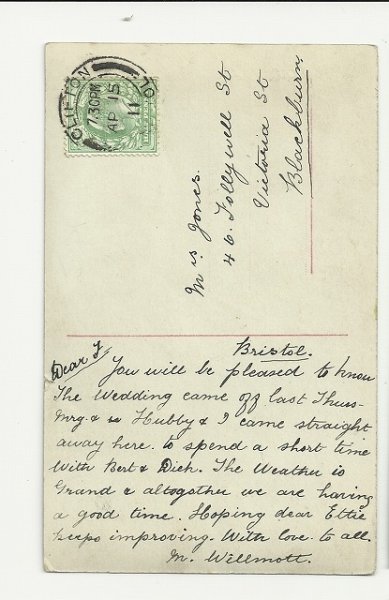 CLIFTON
7.30PM
AP 15
11
Mis Jones.
46. Follywell St
Victoria St
Blackburn
Bristol.
Dear F
You will be pleased to know
The Wedding came off last Thurs-
Mrg & Hubby & I came straight
away here. to spend a short time
With Bert & Dick. The Weather is
Grand & altogether we are having
a good time. Hoping dear Ettie
keeps improving. With love to all.
M. Willmott.